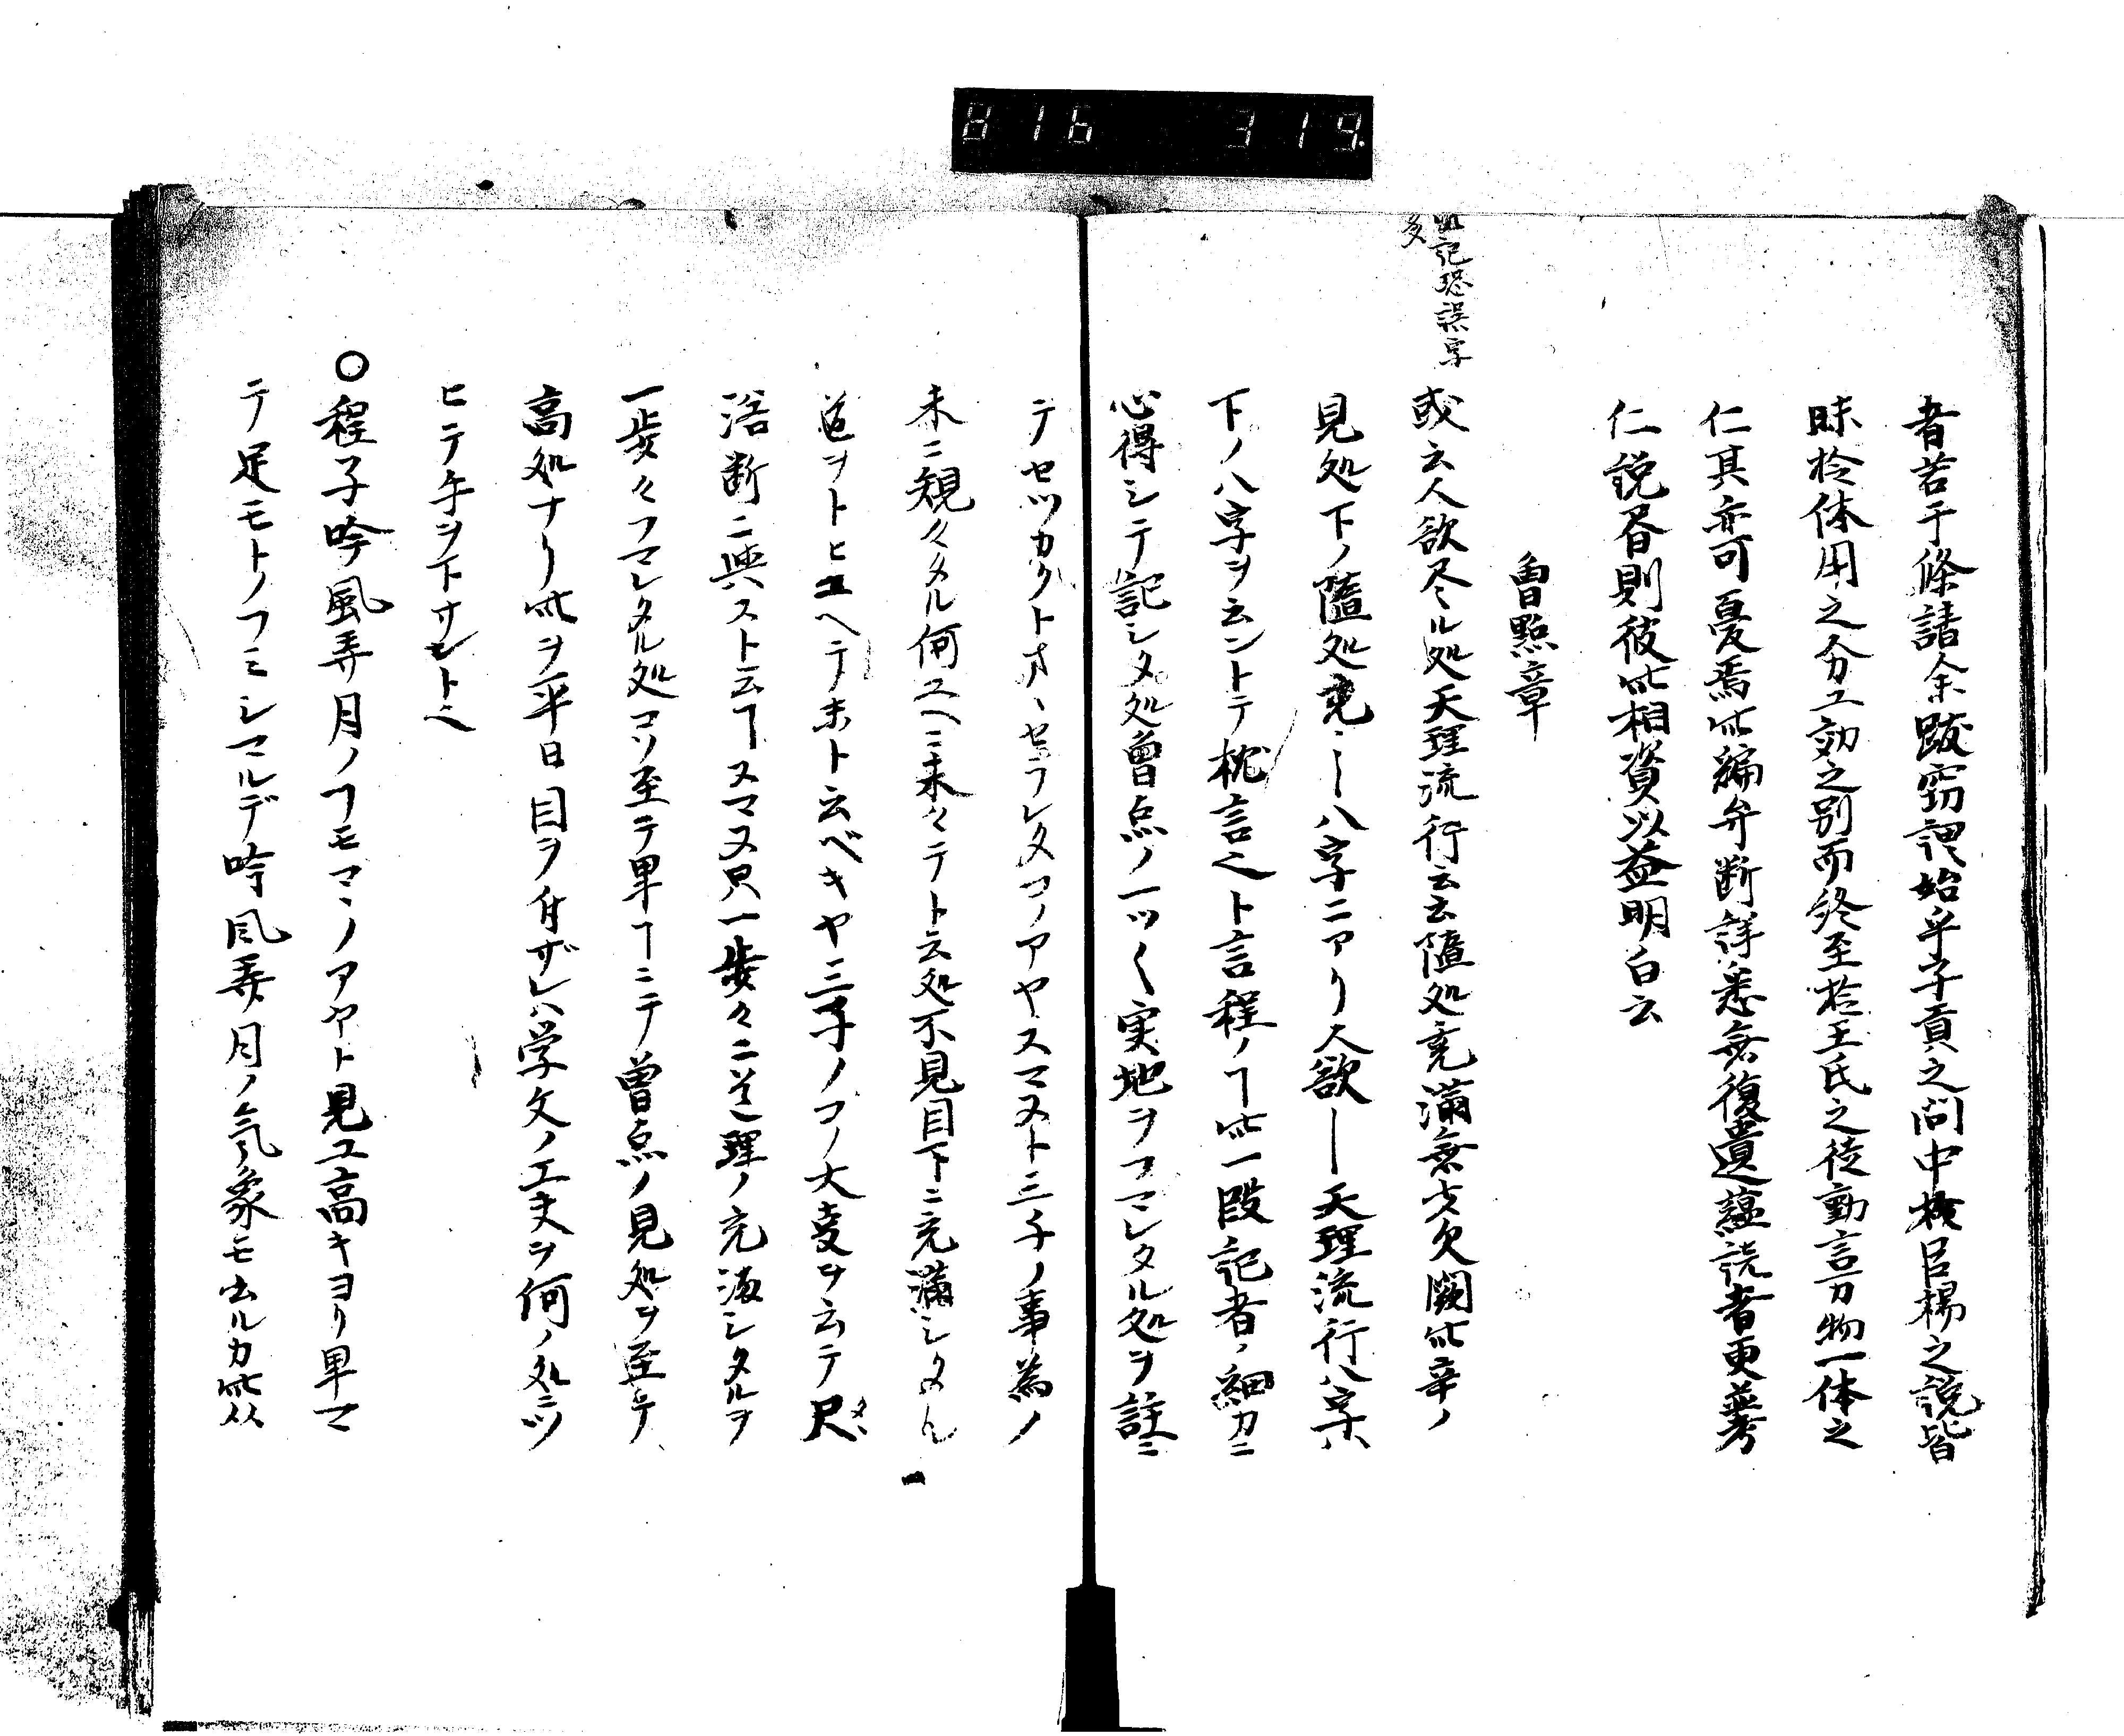 816 319.
者若干條請余跋窃謂始乎子貢之問中検呂楊之説皆
昧於体用之分工効之別而終至於王氏之徒動言万物一体之
仁其亦可憂焉此編弁断詳悉無復遺蘊読者更並考
仁説答則彼此相資以益明白云
曽點章
此記恐誤字
多
或云人欲尽ル処天理流行云云随処充満無少欠闕此章ノ
見処下ノ随処充ー八字ニアリ人欲ー天理流行八字ハ
下ノ八字ヲ云ントテ枕言ヘト言程ノ
心得シテ記シタ処曽点ノ一ツ〱実地ヲフマレタル処ヲ註ニ
アヤスマヌト三子ノ事為ノ
末ニ規々タル何ユヘニ末々テト云処不見目下ニ充満シタル
道ヲトヒユヘテ末ト云ベキヤ三子ノ
浴断ニ興ストスマヌ只一歩々ニ道理ノ充満シタルヲ
一歩々フマレタル処コソ至テ卑ヿニテ曽点ノ見処ヲ至テ
高処ナリ此ヲ平日目ヲ付ザレハ学文ノ工夫ヲ何ノ処ニツ
ヒテ手ヲ下サント
〇程子吟風弄月ノヿモマヽノアヤト見ユ高キヨリ卑マ
テ足モトノフミシマルデ吟風弄月ノ気象モ出ルカ此